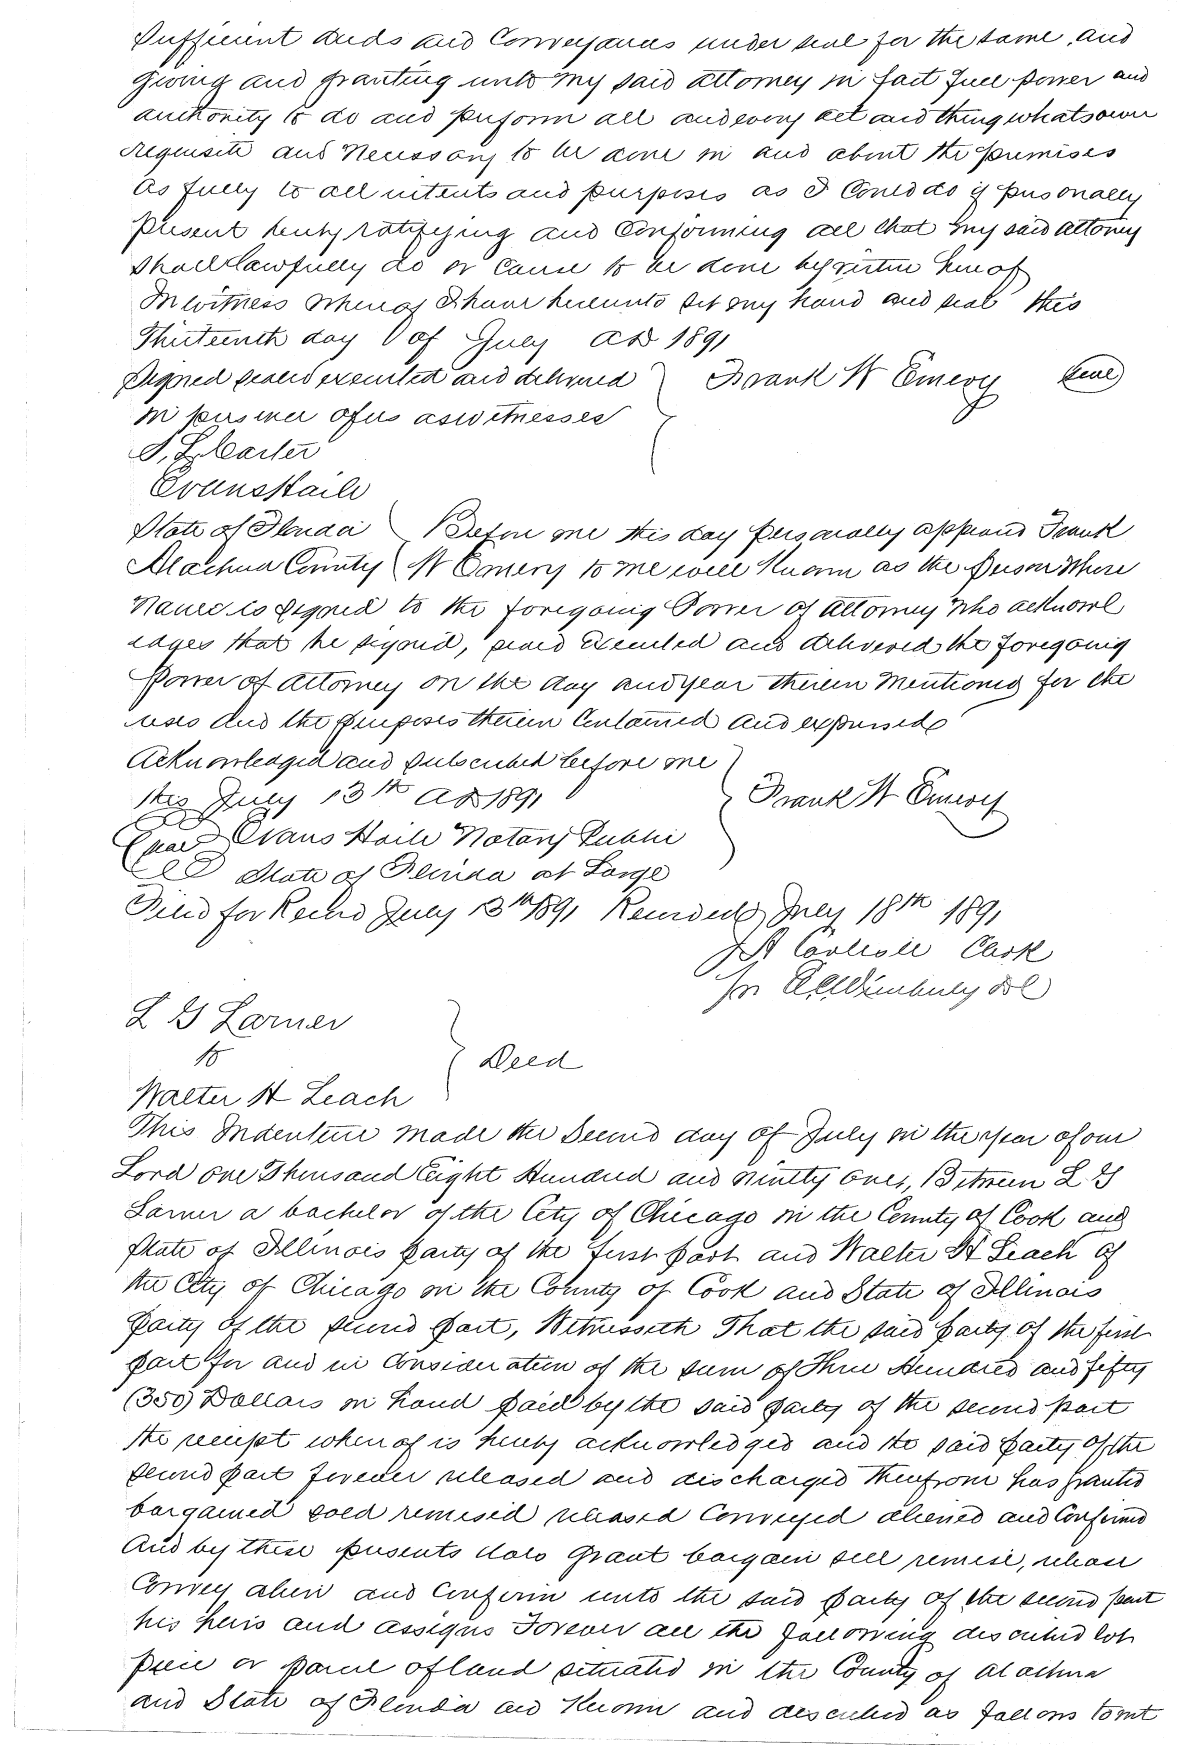 Sufficient deeds and Conveyances under seal for the same, and
giving and granting unto my said attorney in fact full power and
authority to do and perform all and every act and thing whatsoever
requisite and Necessary to be done in and about the premises
as fully to all intents and purposes as I Could do if personally
present hereby ratifying and Confirming all that my said attorney
shall lawfully do or cause to be done by virtue hereof
In witness whereof I have hereunto set my hand and seal this
Thirteenth day of July AD 1891
Signed sealed executed and delivered } Frank W Emery (seal)
in presence of us as witnesses
S. L. Carter
Evans Haile
State of Florida } Before me this day personally appeared Frank
Alachua County } W Emery to me well Known as the Person Whose
Name is signed to the foregoing Power of Attorney Who acknowl
edges that he signed, sealed Executed and delivered the foregoing
Power of Attorney on the day and year therein Mentioned for the
uses and the purposes therein Contained and expressed
Acknowledged and subscribed before me
this July 13th AD 1891 } Frank W Emery
(seal) Evans Haile Notary Public
State of Florida at Large
Filed for Record July 13th 1891 Recorded July 18th 1891
Carlisle Clerk
DC
L G Larner
to } Deed
Walter H Leach
This Indenture made the Second day of July in the year of our
Lord one Thousand Eight Hundred and ninety one, Between L G
Larner a bachelor of the City of Chicago in the County of Cook and
State of Illinois party of the first part and Walter H Leach of
the City of Chicago in the County of Cook and State of Illinois
party of the second part, Witnesseth That the said party of the first
part for and in Consideration of the sum of Three Hundred and fifty
(350) Dollars in hand paid by the said party of the second part
the receipt whereof is hereby acknowledged and the said party of the
second part forever released and discharged therefrom has granted
bargained sold remised released Conveyed aliened and Confirmed
And by these presents does Grant bargain sell remise, release
Convey alien and Confirm unto the said party of the second part
his heirs and assigns Forever all the following described lot
piece or parcel of land situated in the County of Alachua
and State of Florida and Known and described as follows towit